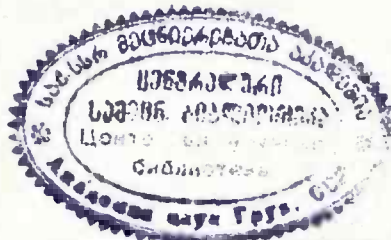 საქ. სსრ მეცნიერებათა აკადემია
ცენტრალური
სამეცნ. ბიბლიოთეკა
библиотека
Академия наук Груз. ССР